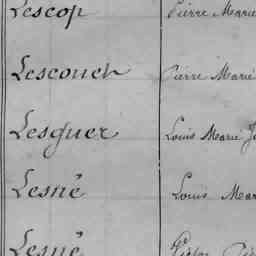 Lescop Pierre Marie
Lescouch Pierre Marie
Lesguer Louis Marie
Lesné Louis Mar
Lesné